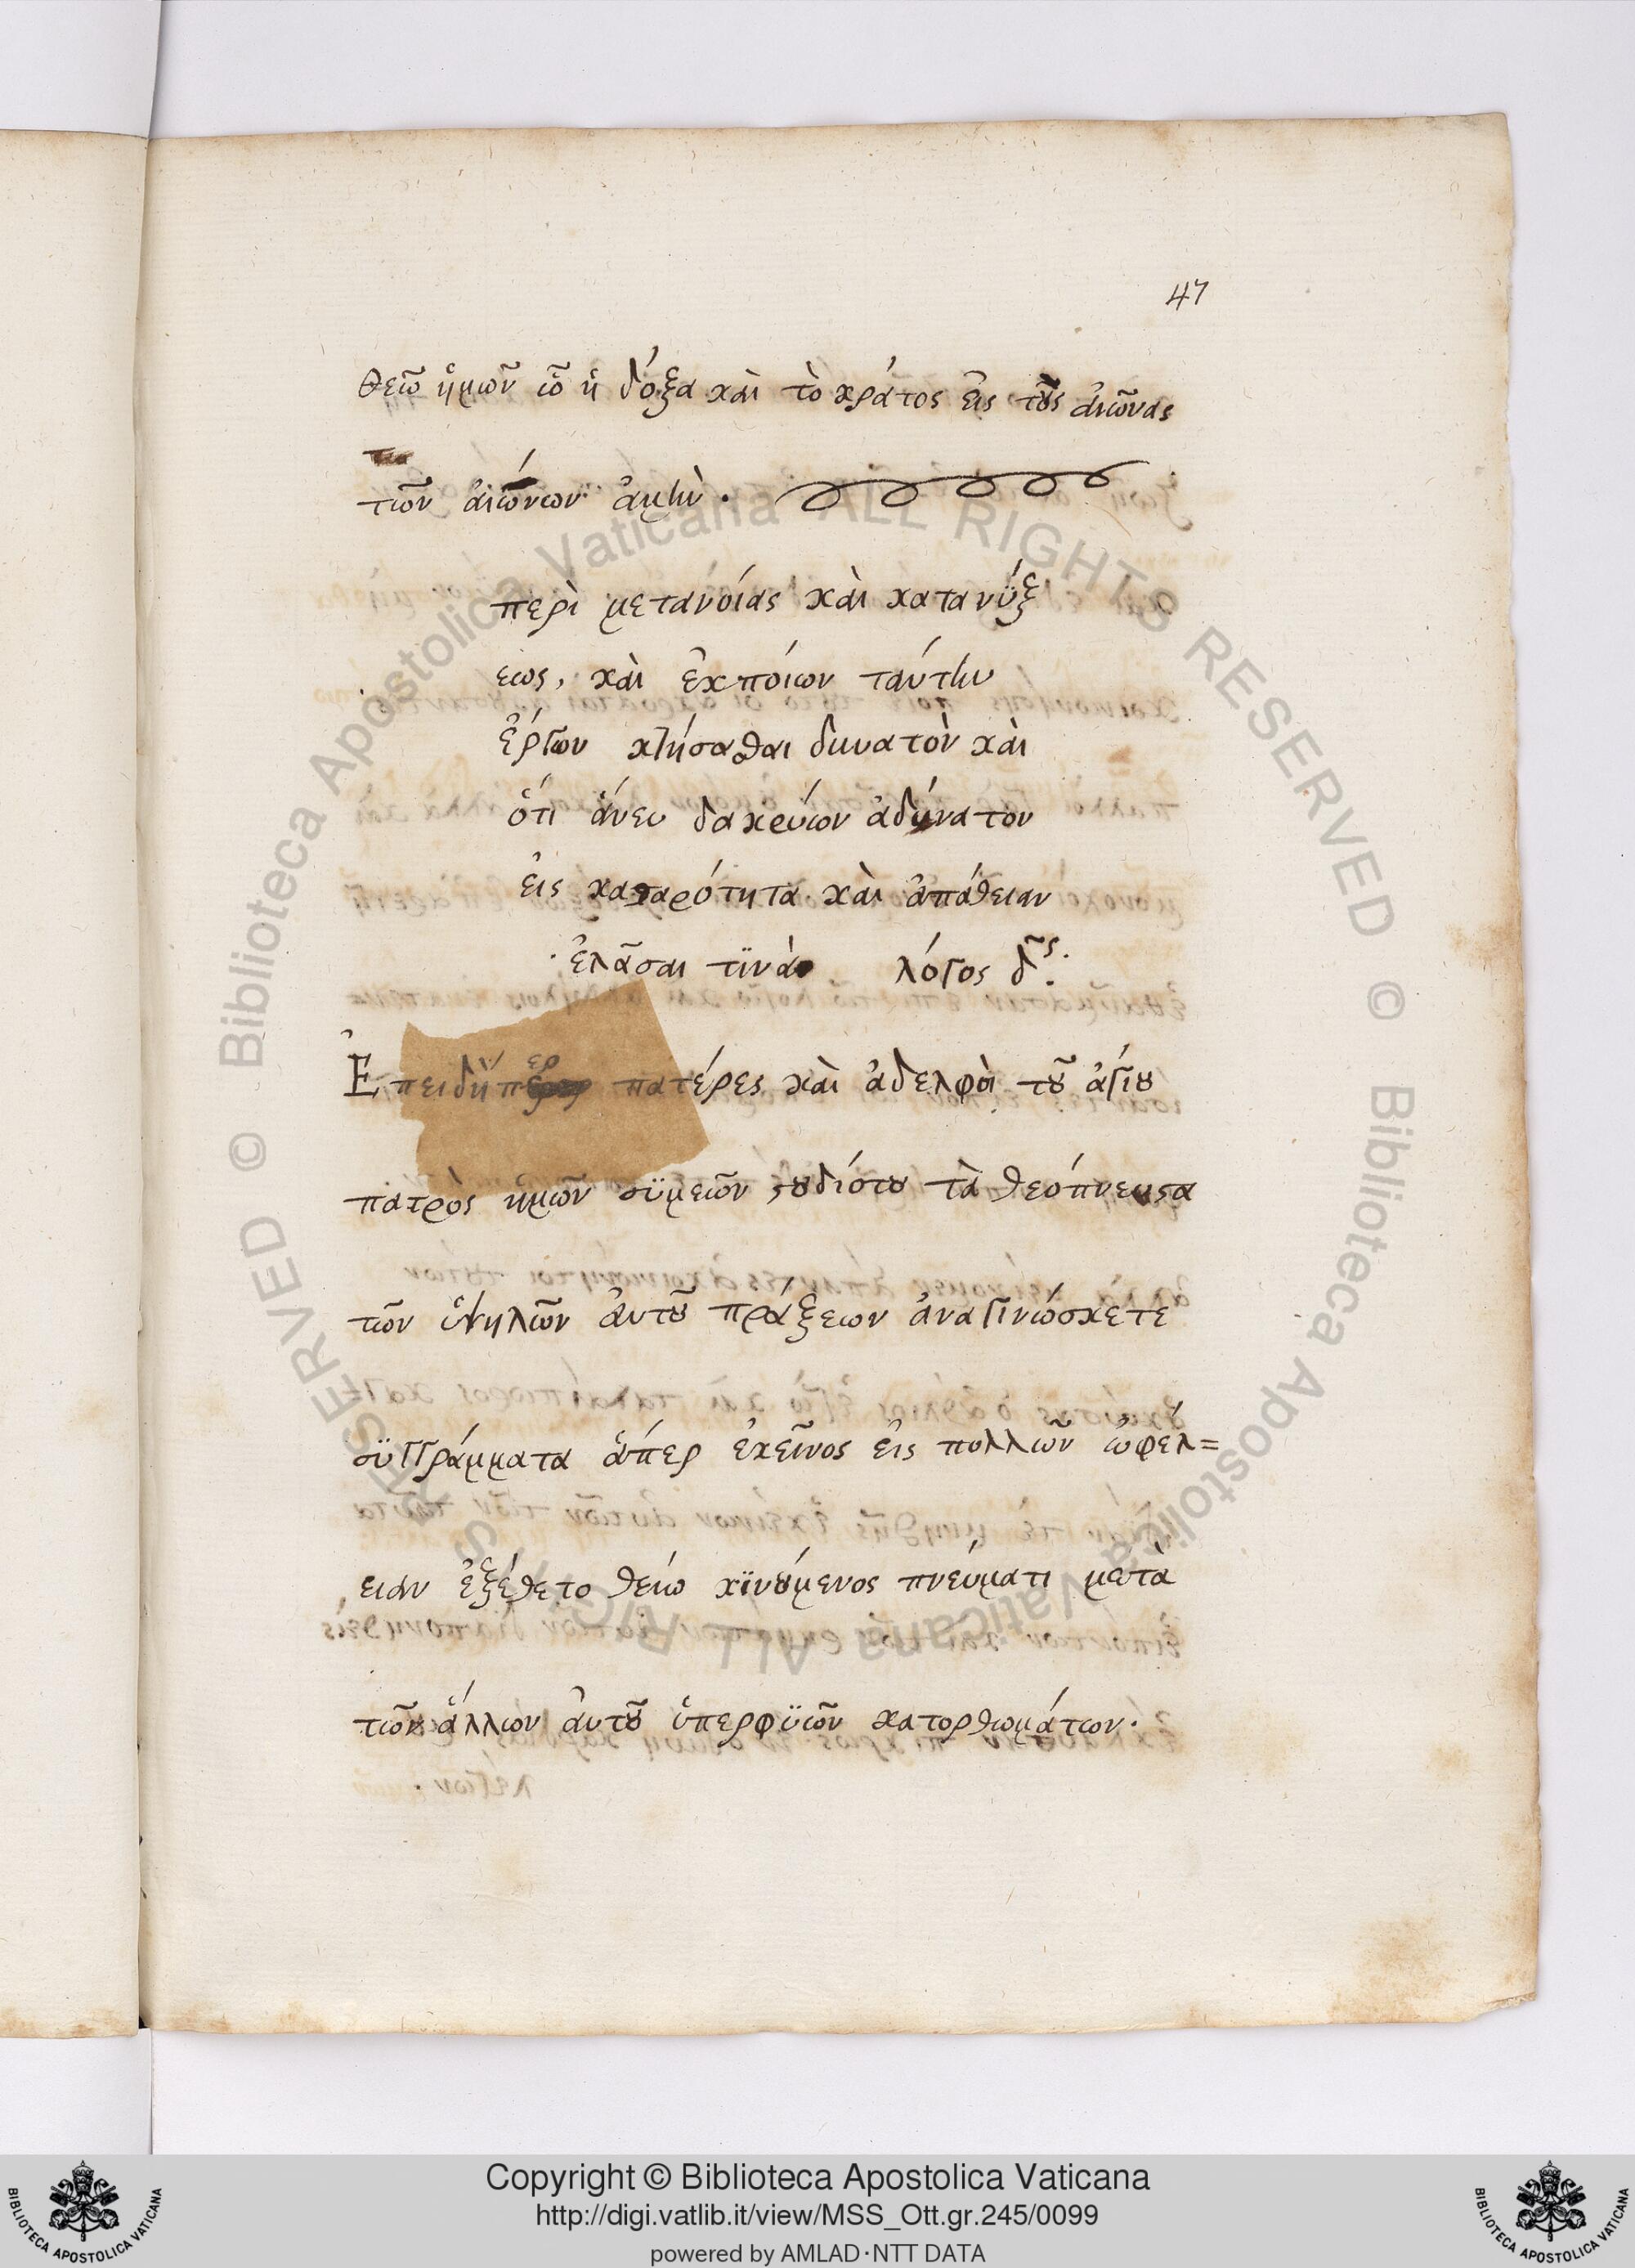 47
θεῶ ἡμῶν ὧ ἡ δόξα καὶ τὸ κράτος εἰς τοὺς αἰῶνας
τῶν αἰώνων ἀμὴν.
περὶ μετανοίας καὶ κατανύξ
εως, καὶ ἐκποίων ταύτην
ἔργων κτήσασθαι δυνατὸν καὶ
ὅτι ἄνευ δακρύων ἀδύνατον
εἰς καθαρότητα καὶ ἀπάθειαν
ἐλᾶσαι τϊνὰ λόγος δ͂ς.
Ἐπειδήπερ πατέρες καὶ ἀδελφοὶ τοῦ ἁγίου
πατρὸς ἡμῶν σϋμεῶν στουδίτου τὰ θεόπνευστα
τῶν ὑψηλῶν αὐτοῦ πράξεων ἀναγινώσκετε
σϋγγράμματα ἅπερ ἐκεῖνος εἰς πολλῶν ὠφέλ=
ειαν ἐξέθετο θείω κϊνούμενος πνεύματι μετὰ
τῶν ἄλλων αὐτοῦ ὑπερφϋῶν κατορθωμάτων.
© Biblioteca Apostolica Vaticana ALL RIGHTS RESERVED
© Biblioteca Apostolica Vaticana ALL RIGHTS RESERVED
BIBLIOTECA APOSTOLICA VATICANA
Copyright © Biblioteca Apostolica Vaticana
http://digi.vatlib.it/view/MSS_Ott.gr.245/0099
powered by AMLAD·NTT DATA
BIBLIOTECA APOSTOLICA VATICANA